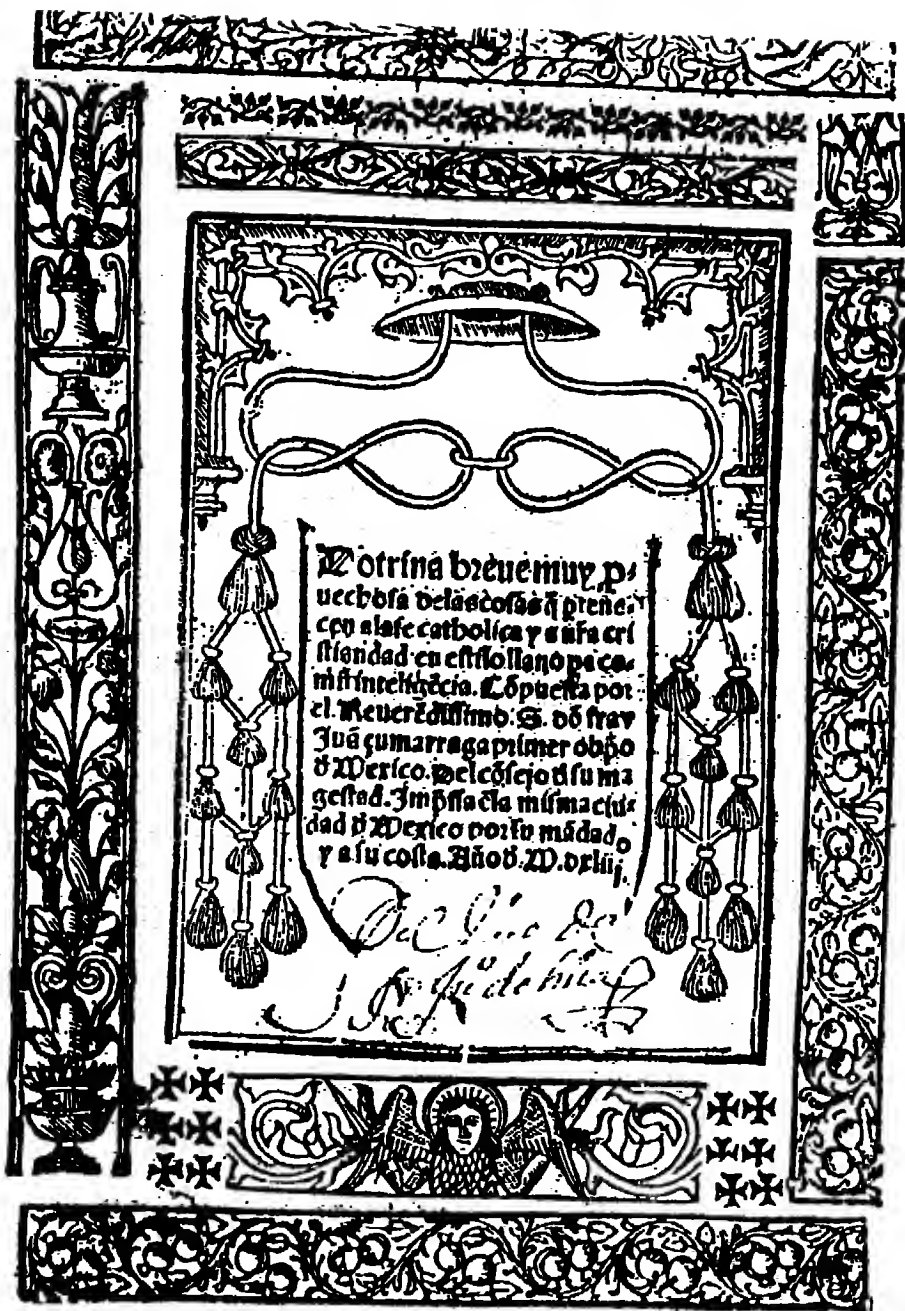 Dotrina breue muy ꝓ-
uechosa delas cosas q̃ ꝑtene-
cen ala fe catholica y a nr̃a cri
stiandad en estilo llano ꝑa co-
mũ inteligẽcia. Cõpuesta por
el. Reuerẽdissimo. S. dõ fray
Juã çumarraga primer obp̃o
d̃ Mexico. Del cõsejo d̃ su ma
gestad. Imp̃ssa ẽla misma ciu-
dad d̃ Mexico por su mãdado
y a su costa. Año d̃. M.dxliij